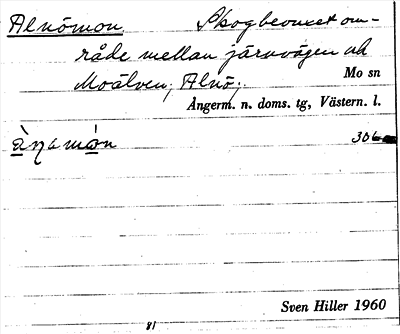 Alnömon Skogbevuxet om-
råde mellan järnvägen och
Moälven, Alnö,
Mo sn
Ångerm. n. doms. tg, Västern. l.
306
Sven Hiller 1960
81